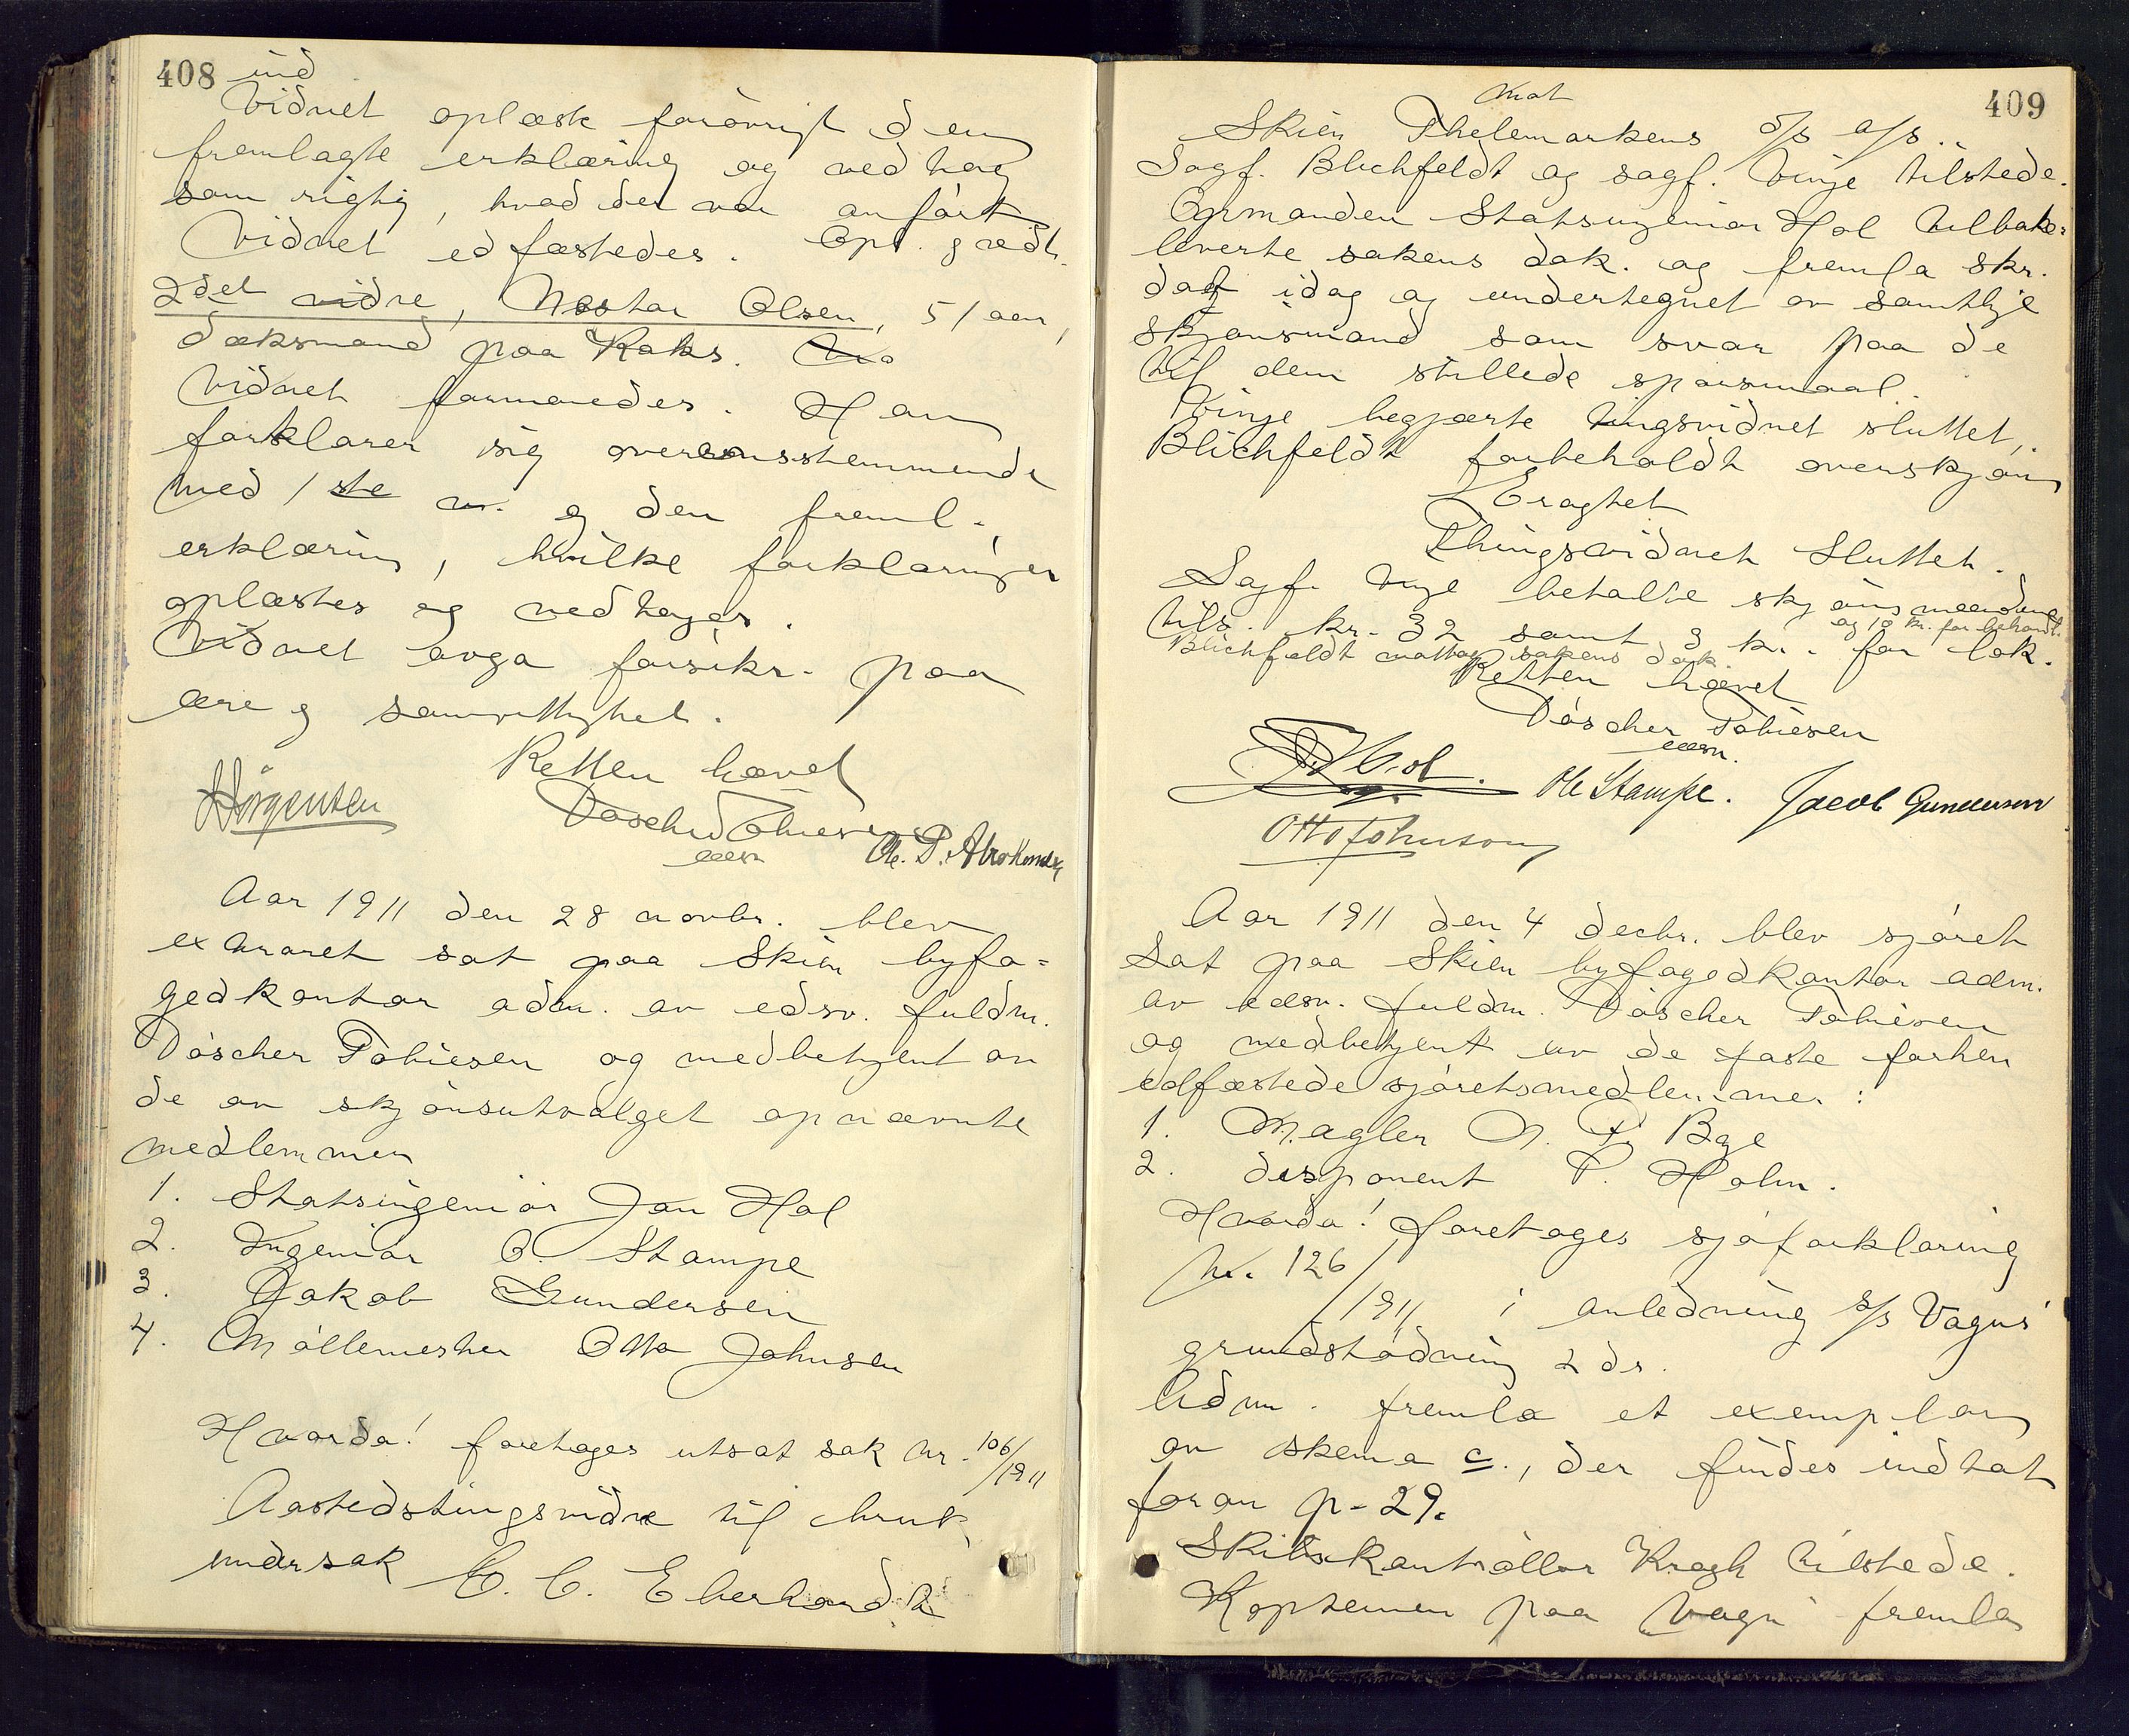 408
ind
Vidnet oplæste forøvrigt den
fremlagte erklæring og vedtog
som rigtig, hvad der var anført
Vidnet edfæstedes. Opl. g vedt.
2det vidne, Nestor Olsen, 51 aar,
dæksmand paa Kaks.
Vidnet formanedes. Han
forklarer sig overensstemmende
med 1ste v. og den freml.
erklæring, hvilke forklaringer
oplæstes og vedtoges.
Vidnet avga forsikr. paa
ære g samvittighet.
Retten hævet
Döscher Tobiesen
edsv.
Jörgensen
Ole. P.
Aar 1911 den 28 novbr. blev
extraret sat paa Skien byfo=
gedkontor adm. av edsv. fuldm.
Döscher Tobiesen og medbetjent av
de av skjønsutvalget opnævnte
medlemmer
1. Statsingeniør Jan Hol
2. Ingeniør O. Stampe
3. Jakob Gundersen
4. Møllemester Otto Johnsen
Hvorda! foretages utsat sak nr. 106/1911
Aastedstingsvidne til bruk
under sak C. C. Eberhardt
409
mot
Skien Thelemarkens D/S A/S.
Sagf. Blichfeldt og sagf. Vinje tilstede.
Opmanden Statsingeniør Hol tilbake=
leverte sakens dok. og fremla skr.
dat idag og undertegnet av samtlige
skjønsmænd som svar paa de
til dem stillede spørsmaal.
Vinje begjærte tingsvidnet sluttet,
Blichfeldt forbeholdt overskjøn
Eragtet
Thingsvidnet Sluttet.
Sagf. Vinje betalte skjønsmændene
og 10 kr. for behandl.
tils. kr. 32 samt 3 kr. for lok.
Blichfeldt mottog sakens dok.
Retten hævet
Döscher Tobiesen
edsv.
J Hol. Ole Stampe. Jacob Gundersen
Otto Johnson
Aar 1911 den 4 decbr. blev sjøret
sat paa Skien byfogedkontor adm.
av edsv. fuldm. Döscher Tobiesen
og medbetjent av de faste forhen
edfæstede sjøretsmedlemmer:
1. Mægler N. Bye
2. disponent P. Holm.
Hvorda! foretages sjøforklaring
Nr. 126/1911 i anledning S/S Vagns
grundstødning 2 ds.
Adm. fremla et exemplar
av skema c., der findes indtat
foran p. 29.
Skibskontrollør Kragh tilstede.
Kapteinen paa Vagn fremla